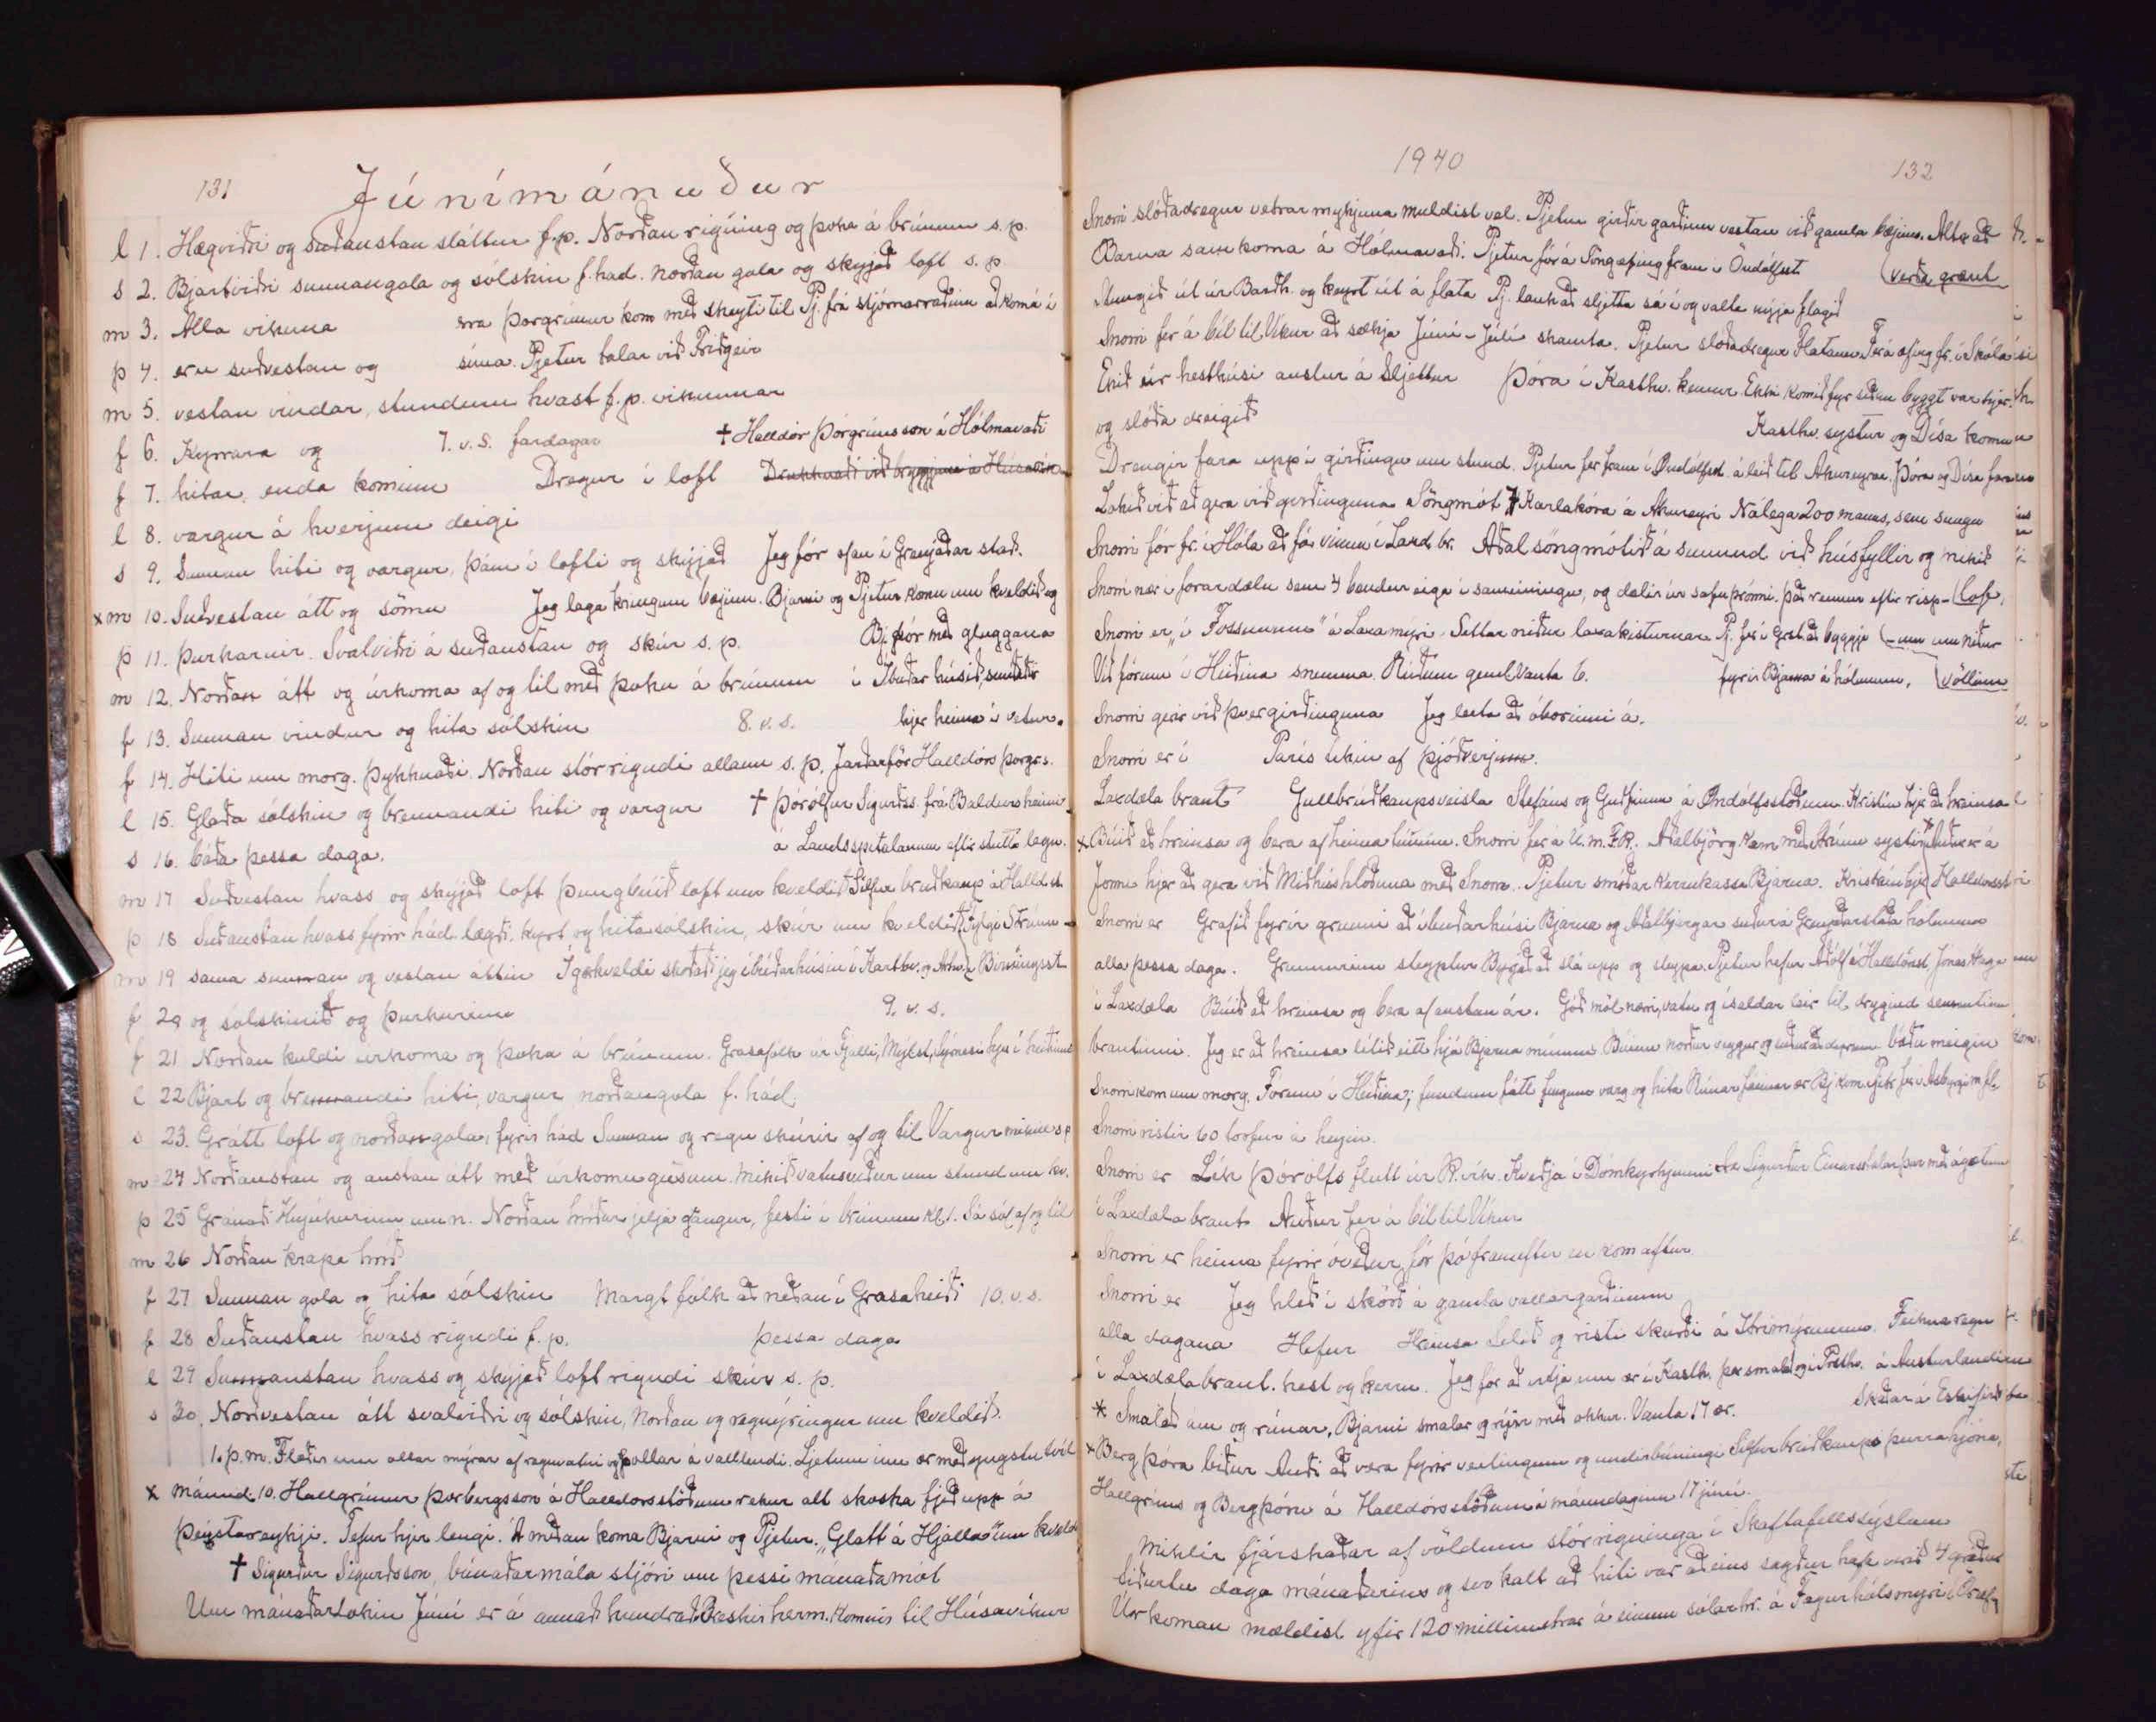 131
Júnímánuður
l 1. Hægviðri og suðaustan sláttur f.p. Norðan rigning og þoka á brúnum s.p.
s 2. Bjartviðri sunnangola og sólskin f. had. norðan gola og skyjað loft s.p
m 3. Alla vikuna sra Þorgrímur kom með skeyti til Pj. frá stjórnarráðinu að koma í
þ 4. eru suðvestan og síma. Pjetur talar við Friðgeir
m 5. vestan vindar, stundum hvast f.p. vikunnar
f 6. Kyrrara og 7. v.s. fardagar † Halldór Þorgrímsson á Hólmavaði
f 7. hitar, enda kominn Dregur í loft Drukknaði við bryggjuna í Húsavík
l 8. vargur á hverjum deigi
s 9. Sunnan hiti og vargur, þám í lofti og skýjað Jeg fór ofan í Grenjaðar stað.
x m 10. Suðvestan átt og sömu Jeg laga kringum bæjinn. Bjarni og Pjetur komu um kveldið og
þ 11. þurkarnir. Svalviðri á suðaustan og skúr s.p. Bj. fór með gluggana
m 12. Norðan átt og úrkoma af og til með þoku á brúnum í Íbúðar húsið, smíðaðir
f 13. Sunnan vindur og hita sólskin 8. v.s. hjer heima í vetur.
f 14. Hiti um morg. Þykknaði. Norðan stór rigndi allann s.p. Jarðarför Halldórs Þorgr.s.
l 15. Glaða sólskin og brennandi hiti og vargur † Þórólfur Sigurðss. frá Baldursheimi
s 16. báða þessa daga. á Landsspítalanum eftir stutta legu.
m 17 Suðvestan hvass og skýjað loft þungbúið loft um kveldið Silfur brúðkaup á Halld.st.
þ 18 Suðaustan hvass fyrir hád. lægði, kyrt og hita sólskin, skúr um kveldið
m 19 sama sunnan og vestan áttin Í gærkveldi skoðaði jeg íbúðarhúsin í Kasthv. og
f 20 og sólskinið og þurkurinn 9. v.s.
f 21 Norðan kuldi úrkoma og þoka á brúnum. Grasafólk úr Fjalli,
l 22 Bjart og brennandi hiti, vargur norðangola f. hád.
s 23. Grátt loft og norðangola, fyrir hád Sunnan og regn skúrir af og til Vargur mikill s.p
m 24 Norðaustan og austan átt með úrkomu gusum. Mikið vatnsveður um stund um kv.
þ 25 Gránaði Hnjúkurinn um n. Norðan hríðar jelja gangur, festi í brúnum kl 1. Sá sól af og til
m 26 Norðan krapa hríð
f 27 Sunnan gola og hita sólskin Margt fólk að neðan í Grasaheiði 10. v.s.
f 28 Suðaustan hvass rigndi f.p. þessa daga
l 29 Sunnanstan hvass og skýjað loft rigndi skúr s.p.
s 30. Norðvestan átt svalviðri og sólskin, Norðan og regnýringur um kveldið.
1. þ.m. Flæðir um allar mýrar af regnvatni og pollar á valllendi. Ljetum inn ær með yngstu tvíl
x Mánud 10. Hallgrímur Þorbergsson á Halldórsstöðum rekur alt skoska fjeð upp á
Þeystareykji. Tefur hjer lengi. Á meðan koma Bjarni og Pjetur. „Glatt á Hjalla" um kveld
† Sigurður Sigurðsson, búnaðarmála stjóri um þessi mánaðamót
Um mánaðarlokin Júní er á annað hundrað Breskir herm. komnir til Húsavíkur
1940
132
Snorri slóðadregur vetrar mykjuna muldist vel. Pjetur girðir garðinn vestan við gamla bæjinn. Alt er að
Barna samkoma á Hólmavaði. Pjetur fór á Söngæfing fram í Öndólfsst. (verða grænt
Mungið út úr Barðh. og keyrt út á flata Pj. lauk að sljetta sá í og valta nýja flagið
Snorri fer á bíl til Víkur að sækja Júní-Júlí skamta. Pjetur slóðadregur Flatann
Ekið úr hesthúsi austur á Sljettur Þóra í Kasthv. kemur Ekki komið fyr síðan byggt var hjer.
og slóða dreigið Kasthv. systur og Dísa komu
Drengir fara upp í girðingu um stund. Pjetur fer fram í Öndólfsst á leið til Akureyrar. Þóra og Dísa fara
Lokið við að gera við girðinguna Söngmót 7 Karlakóra á Akureyri Nálega 200 manns, sem sungu
Snorri fór fr. í Hóla að fá vinnu í Laxd br. Aðal söngmótið á sunnud við húsfyllir og mikið
Snorri nær í forardælu sem 4 bændur eiga í sameiningu, og dælir úr safnþrónni. Það rennur eftir risp- (lof,
Snorri er „í Fossunum" á Laxamýri. Settar niður laxakisturnar Pj. fer í Grst. að byggja (-um um neðar
Við fórum í Heiðina snemma. Rúðum geml. Vanta 6. fyrir Bjarna á hólnum, (völlinn
Snorri gerir við þvergirðinguna Jeg leita að óborinni á.
Snorri er í París tekin af Þjóðverjum.
Laxdæla braut Gullbrúðkaupsveisla Stefáns og Guðfinnu á Öndólfsstöðum. Kristín hjer að hreinsa
x Búið að hreinsa og bera af heima túninu. Snorri fer á U.m.F.R. Aðalbjörg kem með Árnínu systir Auður er á
Jónu hjer að gera við Miðhúshlöðuna með Snorra. Pjetur smíðar kerrukassa Bjarna. Kristín hjer Halldórsst
Snorri er Grafið fyrir grunni að íbúðarhúsi Bjarna og Aðalbjargar suður á Grenjaðarstaða hólnum
alla þessa daga. Grunnurinn steyptur Byrjað að slá upp og steypa. Pjetur hefur Aðólf á Halldórsst, Jónas Haga
í Laxdæla Búið að hreinsa og bera af austan ár. Góð möl nærri, vatn og ísaldar leir til drýginda sementinu
brautinni. Jeg er að hreinsa lítið eitt hjá Bjarna mínum báðu meigin
Snorri kom um morg. Fórum í Heiðina; fundum fátt fengum varg og hita
Snorri ristir 60 torfur á heyin.
Snorri er Lík Þórólfs flutt úr R.vík. Kveðja í Dómkyrkjunni Sr Sigurður Einarss talar þar með ágætum
í Laxdæla braut Auður fer á bíl til Víkur
Snorri er heima fyrir óveður, fór þó frameftir en kom aftur.
Snorri er Jeg hleð í skörð á gamla vallargarðinum
alla dagana Hefur Heimsa Leið og risti skurði á Hrísmýrunum. Feikna regn
í Laxdælabraut. hest og kerru. Jeg fór að vitja um ær í Kasth. þar smalað og í Presthv. á Austurlandinu
* Smalað um og rúnar, Bjarni smalar og rýir með okkur. Vanta 17 ær. Skaðar á Eskifirði
x Bergþóra biður Auði að vera fyrir veitingum og undirbúningi Silfurbrúðkaups þeirra hjóna,
Hallgríms og Bergþóru á Halldórsstöðum á mánudaginn 17 júní.
Miklir fjárskaðar af völdum stórrigninga í Skaftafellssýslum
síðustu daga mánaðarins og svo kalt að hiti var aðeins sagður hafa verið 4 gráður
Úrkoman mældist yfir 120 millimetrar á einum sólarhr. á Fagurhólsmýri í Öræf